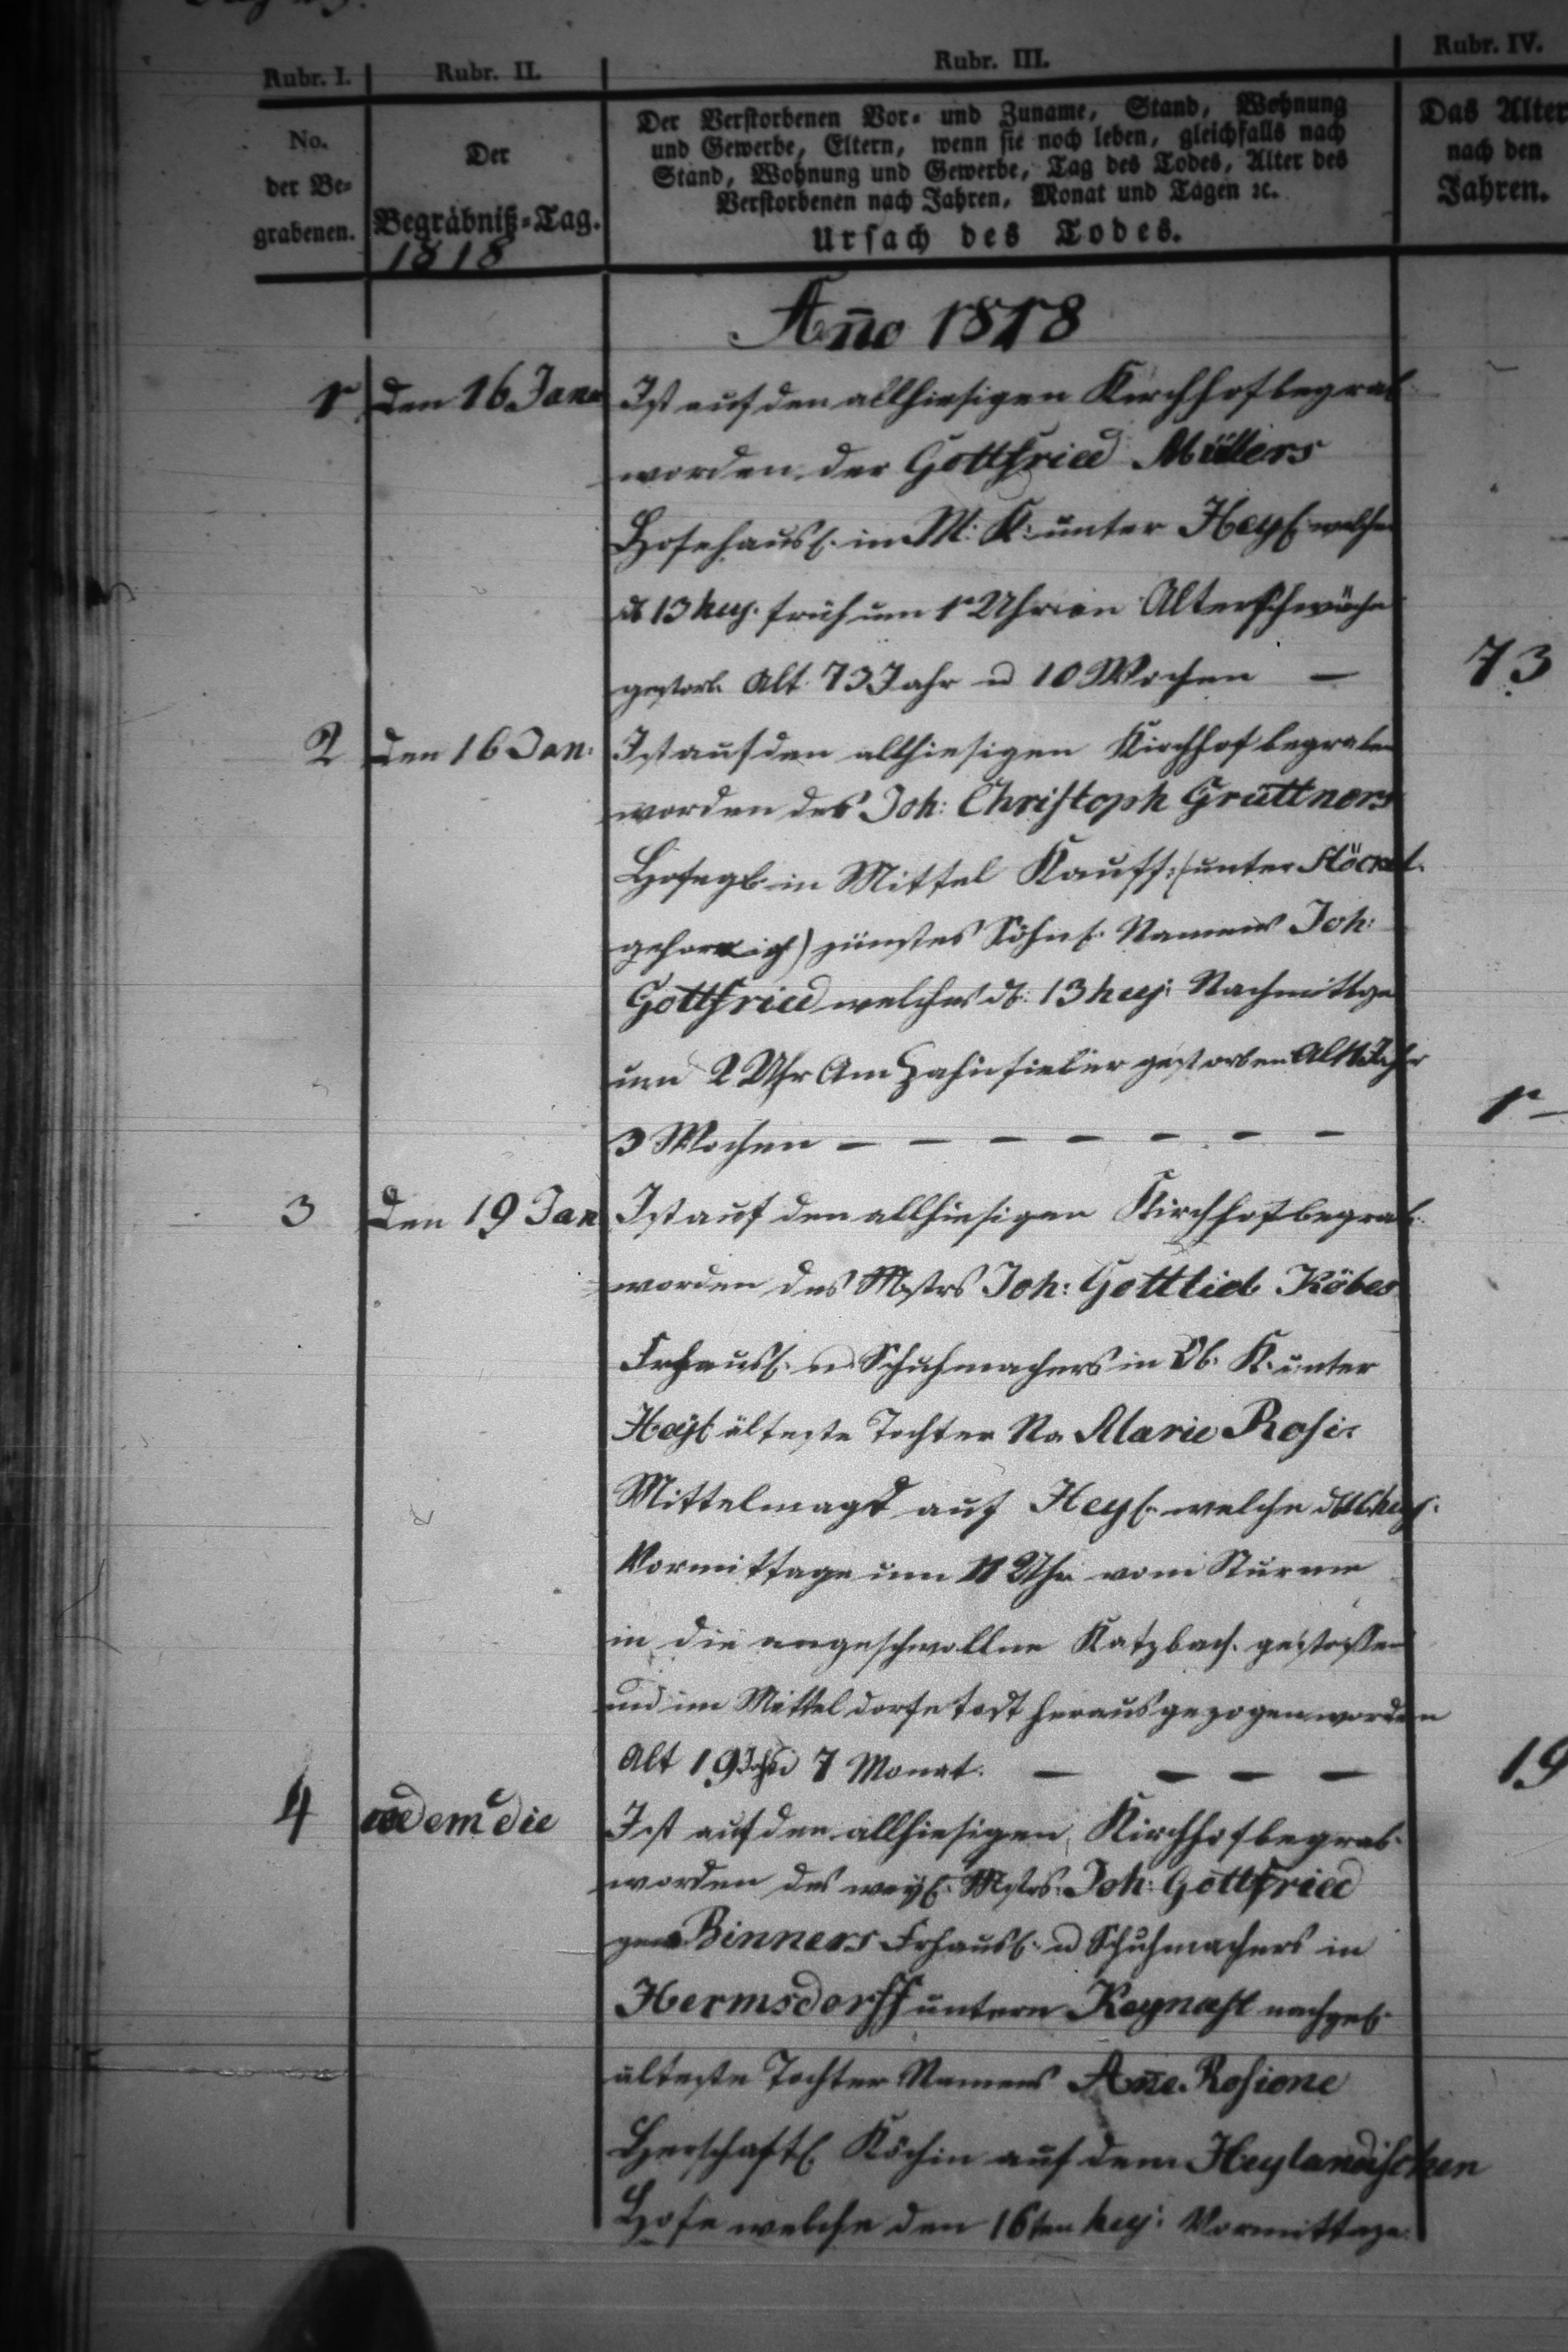 Rubr. I.
Rubr. II.
Rubr. III.
Rubr. IV.
No.
der Be-
grabenen.
Der
Begräbniß-Tag.
1818
Der Verstorbenen Vor- und Zuname, Stand, Wohnung
und Gewerbe, Eltern, wenn sie noch leben, gleichfalls nach
Stand, Wohnung und Gewerbe, Tag des Todes, Alter des
Verstorbenen nach Jahren, Monat und Tagen ꝛc.
Ursach des Todes.
Das Alter
nach den
Jahren.
Año 1818
1 Den 16 Jan Ist auf den allhiesigen Kirchhof begrab
worden der Gottfried Müllers
Hofehausl. in M: K: unter Heyl welcher
d 13 huj. früh um 1 Uhr an Alterschwäche
gestorb. Alt 73 Jahr u 10 Wochen — 73
2 Den 16 Jan: Ist auf den allhiesigen Kirchhof begraben
worden des Joh: Christoph Gruttners
Hofegl. in Mittel Kauff: (unter Stöckel
gehörig) jünstes Söhnl. Namens Joh:
Gottfried welches d: 13 huj: Nachmittge
um 2 Uhr Am Zahnfieber gestorben Alt 1 Jahr
3 Wochen — — — — — — — 1 —
3 Den 19 Jan Ist auf den allhiesigen Kirchhof begrab.
worden des Mstrs Joh: Gottlieb Köbes
Frhausl. u Schuhmachers in Ob. K. unter
Heyl älteste Tochter Na Marie Rosi:
Mittelmagd auf Heyl. welche d 16 huj.
Vormittage um 11 Uhr vom Sturme
in die angeschwollne Katzbach gestoßen
und im Mitteldorfe todt herausgezogen worden
Alt 19 Jahr 7 Monat. — — — — 19
4 eodem die Ist auf den allhiesigen Kirchhof begrab.
worden des weyl. Mstrs: Joh: Gottfried
Binners Frhausl. u Schuhmachers in
Hermsdorff untern Keynast nachgel.
älteste Tochter Namens Añe Rosione
Herschaftl. Köchin auf dem Heylandischen
Hofe welche den 16ten huj: Vormittage